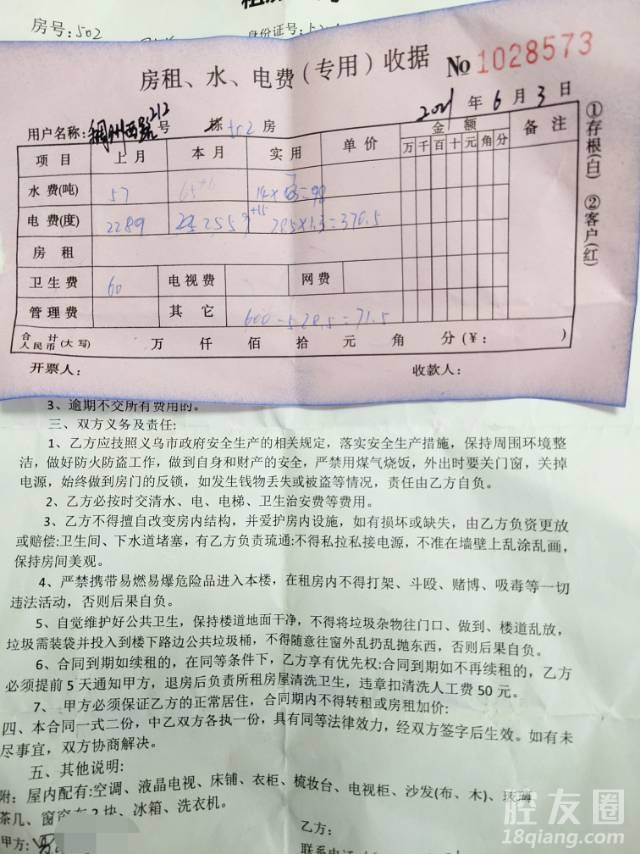 房号:502
身份证号:
房租、水、电费(专用)收据 No 1028573
用户名称:稠州西路212号 栋502房 2021年6月3日
项目 上月 本月 实用 单价 金额 备注
万千百十元角分
水费(吨) 57 65+6
电费(度) 2289 2555 +15 285×1.3=370.5
房租
卫生费 60 电视费 网费
管理费 其它 600-528.5=71.5
合计人民币(大写) 万 仟 佰 拾 元 角 分(¥: )
开票人: 收款人:
①存根(白) ②客户(红)
3、逾期不交所有费用的。
三、双方义务及责任:
1、乙方应技照义乌市政府安全生产的相关规定，落实安全生产措施，保持周围环境整
洁，做好防火防盗工作，做到自身和财产的安全，严禁用煤气烧饭，外出时要关门窗，关掉
电源，始终做到房门的反锁，如发生钱物丢失或被盗等情况，责任由乙方自负。
2、乙方必按时交清水、电、电梯、卫生治安费等费用。
3、乙方不得擅自改变房内结构，并爱护房内设施，如有损坏或缺失，由乙方负资更放
或赔偿:卫生间、下水道堵塞，有乙方负责疏通:不得私拉私接电源，不准在墙壁上乱涂乱画，
保持房间美观。
4、严禁携带易燃易爆危险品进入本楼，在租房内不得打架、斗殴、赌博、吸毒等一切
违法活动，否则后果自负。
5、自觉维护好公共卫生，保持楼道地面干净，不得将垃圾杂物往门口、做到、楼道乱放，
垃圾需装袋并投入到楼下路边公共垃圾桶，不得随意往窗外乱扔乱抛东西，否则后果自负。
6、合同到期如续租的，在同等条件下，乙方享有优先权:合同到期如不再续租的，乙方
必须提前5天通知甲方，退房后负责所租房屋清洗卫生，违章扣清洗人工费50元。
7、 甲方必须保证乙方的正常居住，合同期内不得转租或房租加价:
四、本合同一式二份，中乙双方各执一份，具有同等法律效力，经双方签字后生效。如有未
尽事宜，双方协商解决。
五、其他说明:
附:屋内配有:空调、液晶电视、床铺、衣柜、梳妆台、电视柜、沙发(布、木)、玻璃
茶几、窗帘布2块、冰箱、洗衣机。
甲方: 乙方:
联系电话
腔友圈
18qiang.com